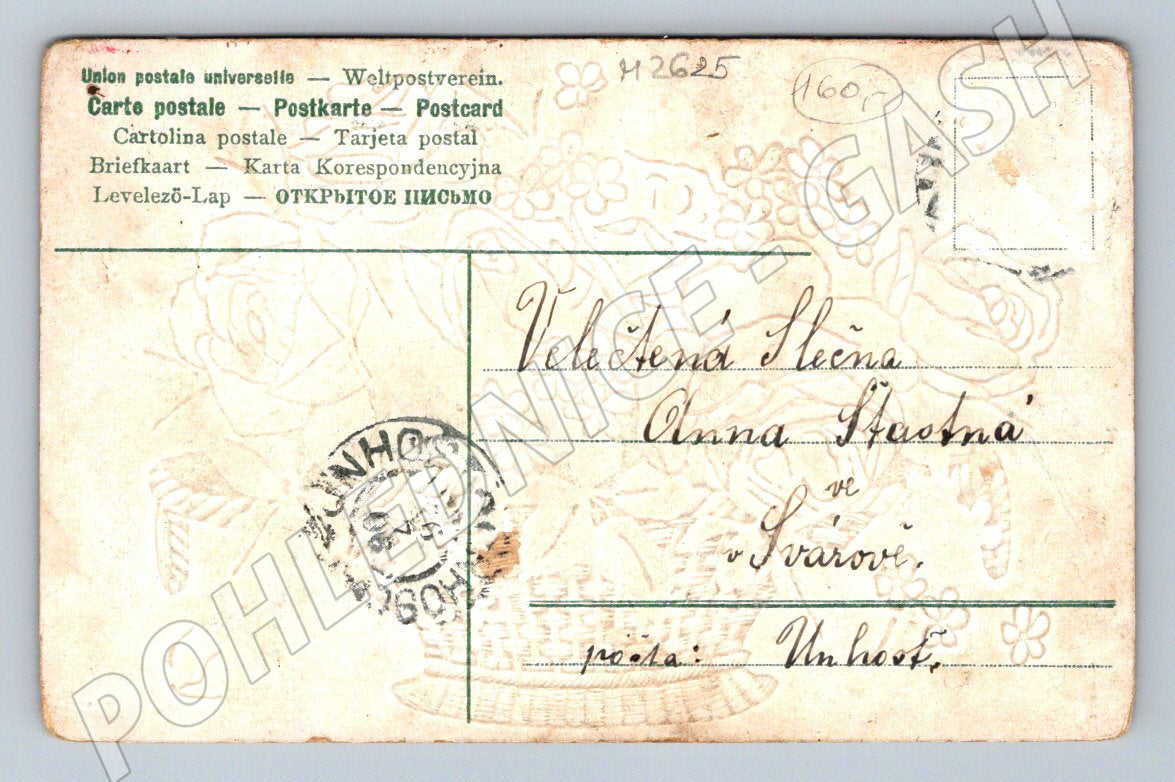 Union postale universelle — Weltpostverein.
Carte postale — Postkarte — Postcard
Cartolina postale — Tarjeta postal
Briefkaart — Karta Korespondencyjna
Levelező-Lap — ОТКРЫТОЕ ПИСЬМО
M2625
160,-
Velečtená Slečna
Anna Šťastná
ve
v Svárově.
pošta: Unhošť,
UNHOŠŤ
POHLEDNICE - GASH